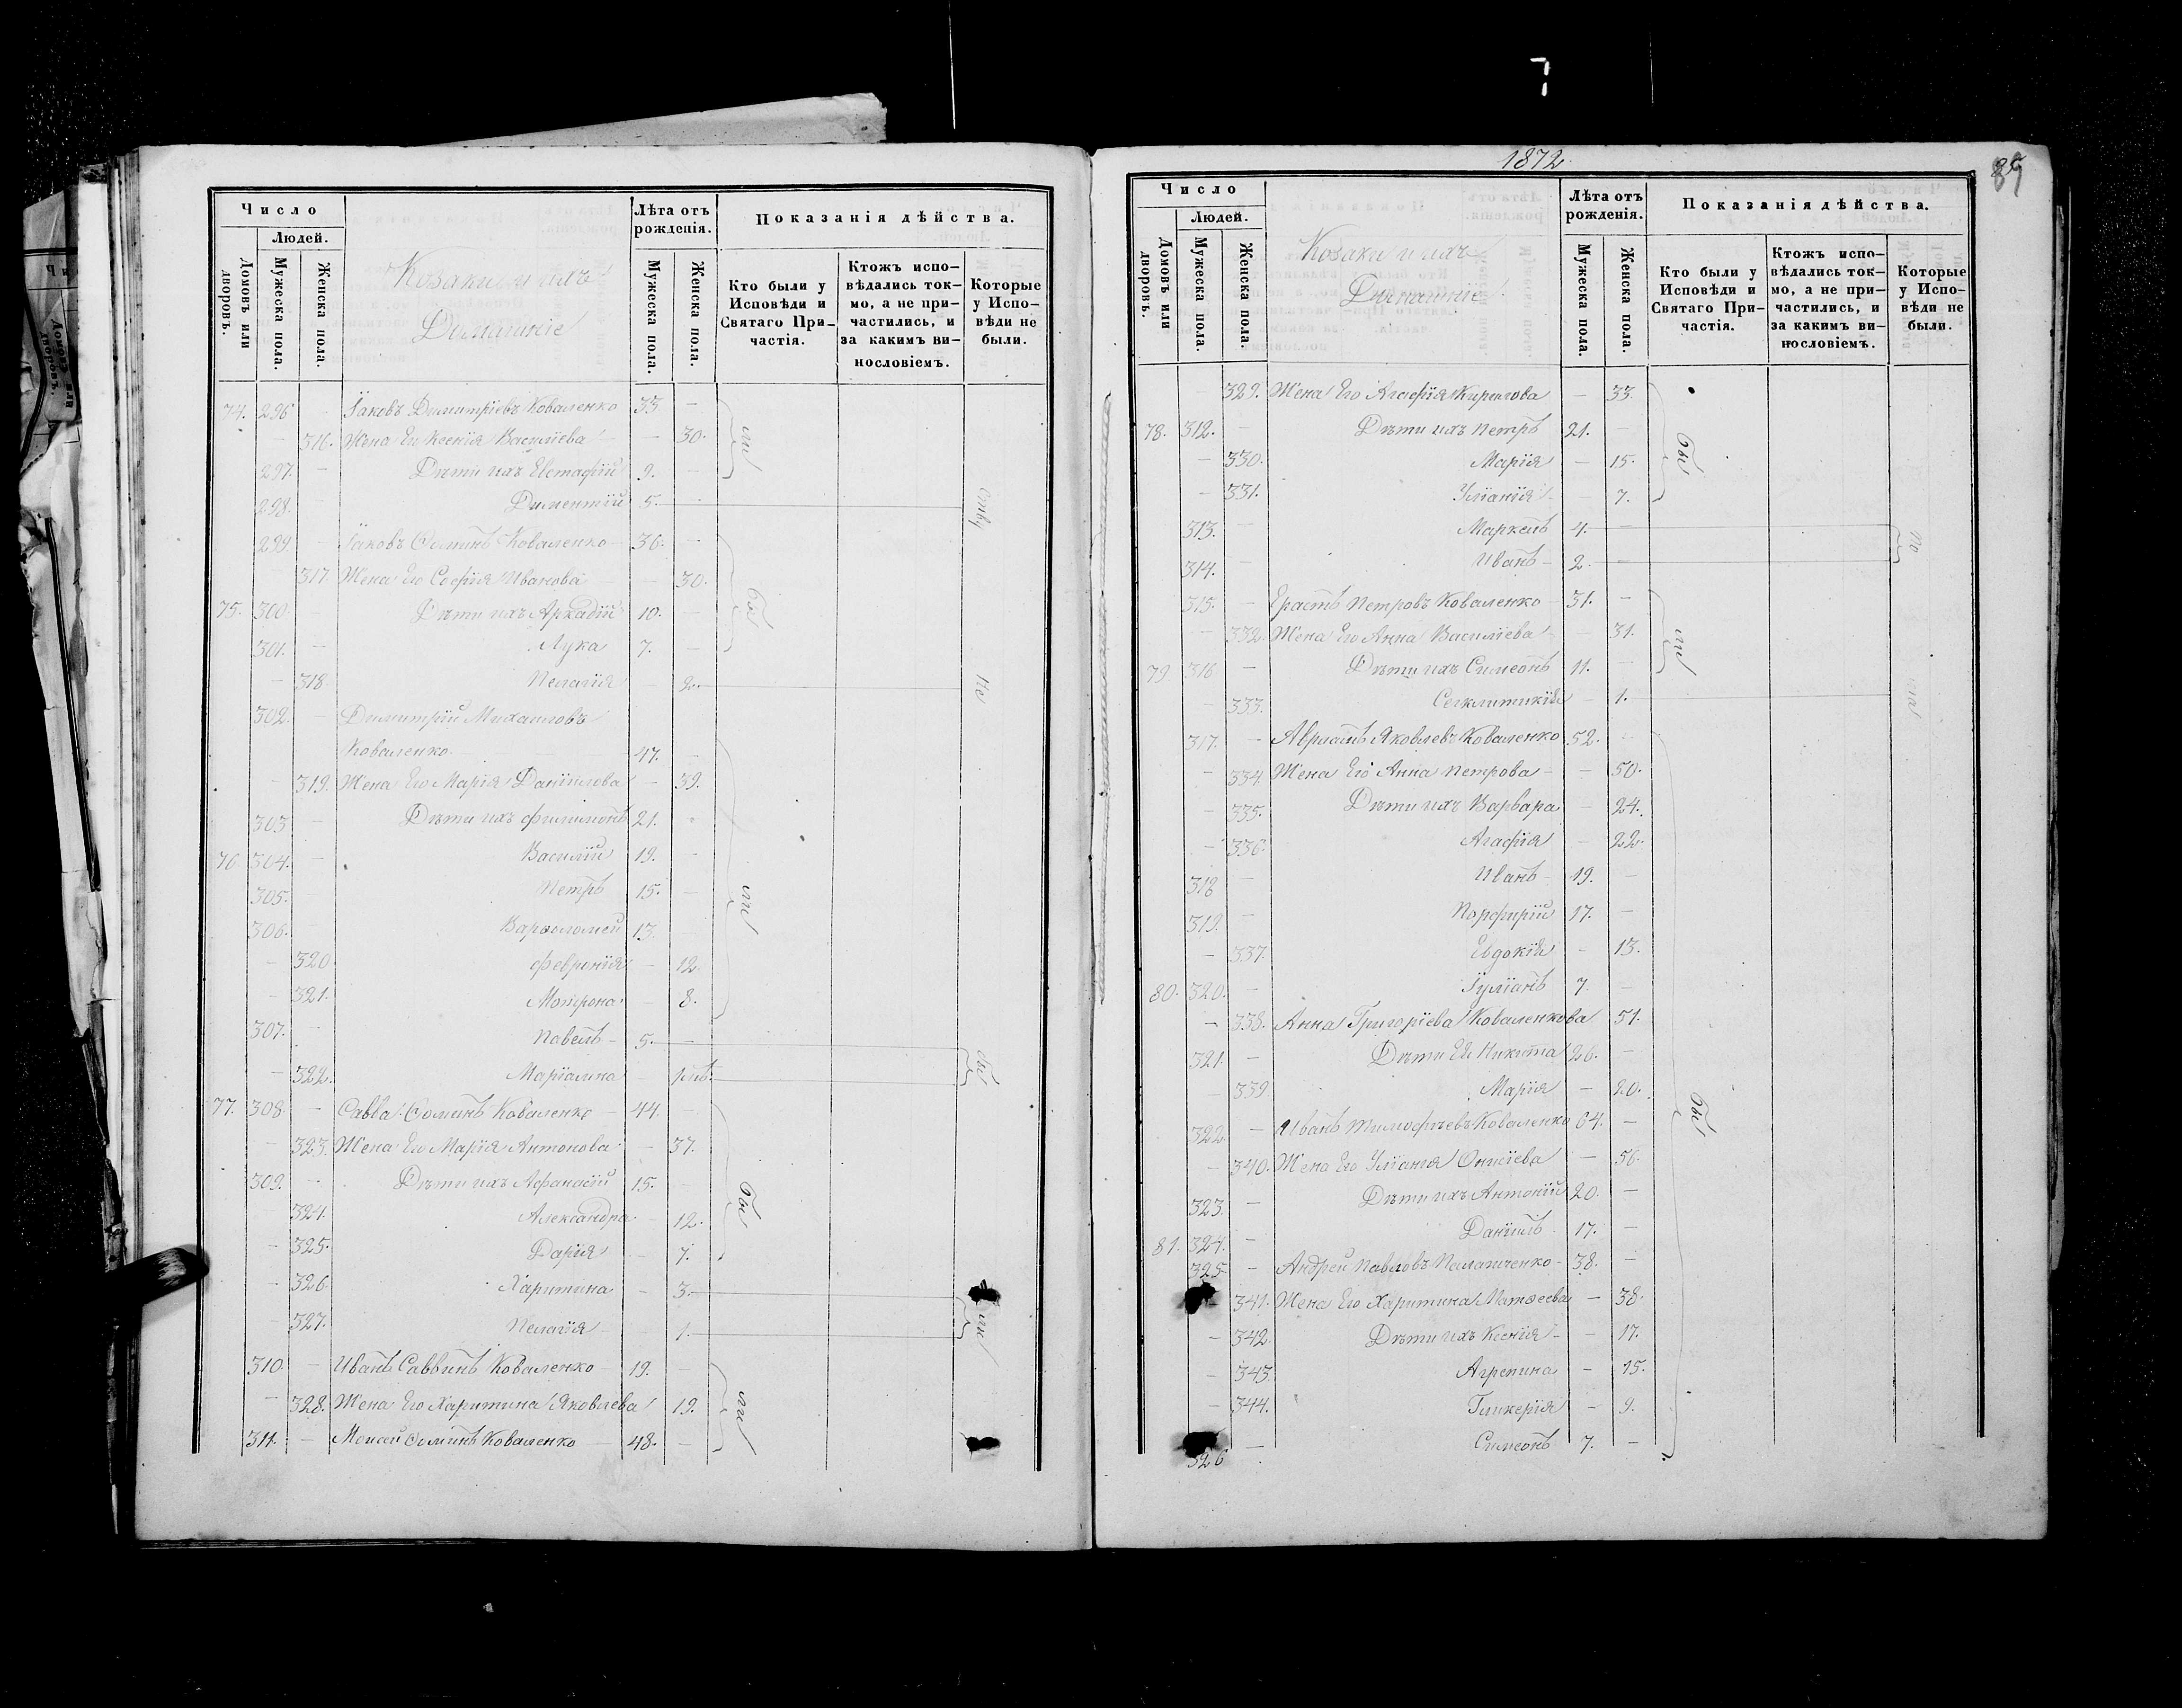 Число
Людей.
Домовъ или дворовъ.
Мужеска пола.
Женска пола.
Козаки и ихъ
Домашніе
Лѣта отъ рожденія.
Мужеска пола.
Женска пола.
Показанія дѣйства.
Кто были у Исповѣди и Святаго Причастія.
Ктожъ исповѣдались токмо, а не причастились, и за какимъ винословіемъ.
Которые у Исповѣди не были.
74. 296 - Їаковъ Димитріевъ Коваленко 33 -
- 316. Жена Его Ксенія Василіева - 30.
297. - Дѣти ихъ Евстафій 9. -
298. - Диментій 5. -
299. - Їаковъ Ѳоминъ Коваленко 36. -
317. Жена Его Софія Иванова - 30.
75. 300 - Дѣти ихъ Аркадій 10. -
301. - Лука 7. -
- 318. Пелагія - 2.
302. - Димитрій Михаиловъ
Коваленко 47. -
- 319. Жена Его Марія Даніилова - 39.
303 - Дѣти ихъ Филимонъ 21.
76 304. - Василій 19. -
305. - Петръ 15. -
306. - Варѳоломей 13.
- 320 Февронія - 12.
- 321. Мотрона - 8.
307. - Павелъ 5. -
- 322. Маріамна
77. 308. - Савва Ѳоминъ Коваленко 44. -
- 323. Жена Его Марія Антонова - 37.
309. - Дѣти ихъ Афанасій 15.
324. Александра 12.
- 325. Дарія - 7.
- 326. Харитина - 3.
- 327. Пелагія - 1.
310. - Иванъ Саввинъ Коваленко 19. -
- 328. Жена Его Харитина Яковлева 19.
311. - Моисей Ѳоминъ Коваленко 48. -
1872
Число
Людей.
Домовъ или дворовъ.
Мужеска пола.
Женска пола.
Козаки и ихъ
Домашніе
Лѣта отъ рожденія.
Мужеска пола.
Женска пола.
Показанія дѣйства.
Кто были у Исповѣди и Святаго Причастія.
Ктожъ исповѣдались токмо, а не причастились, и за какимъ винословіемъ.
Которые у Исповѣди не были.
- 329. Жена Его Агафія Кирилова - 33.
78. 312. - Дѣти ихъ Петръ 21. -
- 330. Марія - 15.
- 331. Уліанія - 7.
313. - Маркелъ 4. -
314. - Иванъ 2. -
315. - Ерастъ Петровъ Коваленко 31. -
- 332. Жена Его Анна Василіева - 31.
79 316 - Дѣти ихъ Симеонъ 11. -
- 333. - 1.
317. - Авраамъ Яковлевъ Коваленко 52. -
- 334. Жена Его Анна Петрова - 50.
- 335. Дѣти ихъ Варвара - 24.
- 336. Агафія - 22.
318 - Иванъ 19. -
319. - Порфирій 17. -
- 337. Евдокія - 13.
80. 320. - Їуліанъ 7. -
- 338. Анна Григоріева Коваленкова 51.
321. - Дѣти Ея Никита 26. -
- 339 Марія - 20.
322. - Иванъ Тимофѣевъ Коваленко 64. -
- 340. Жена Его Уліанія - 56.
323. - Дѣти ихъ Антоній 20. -
81. 324. - Даніилъ 17. -
325 - Андрей Павловъ 38. -
341. Жена Его Харитина Матѳеева - 38.
- 342. Дѣти ихъ Ксенія - 17.
- 343. Агрепина - 15.
- 344. Гликерія - 9.
326 - Симеонъ 7. -